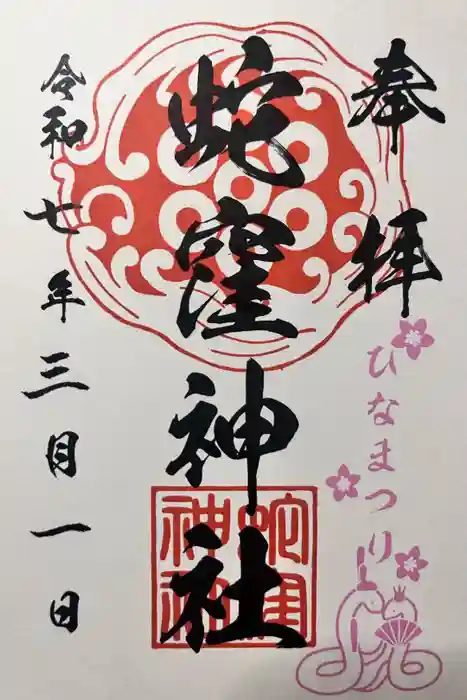 奉拝
ひなまつり
蛇窪神社
蛇窪神社
令和七年三月一日